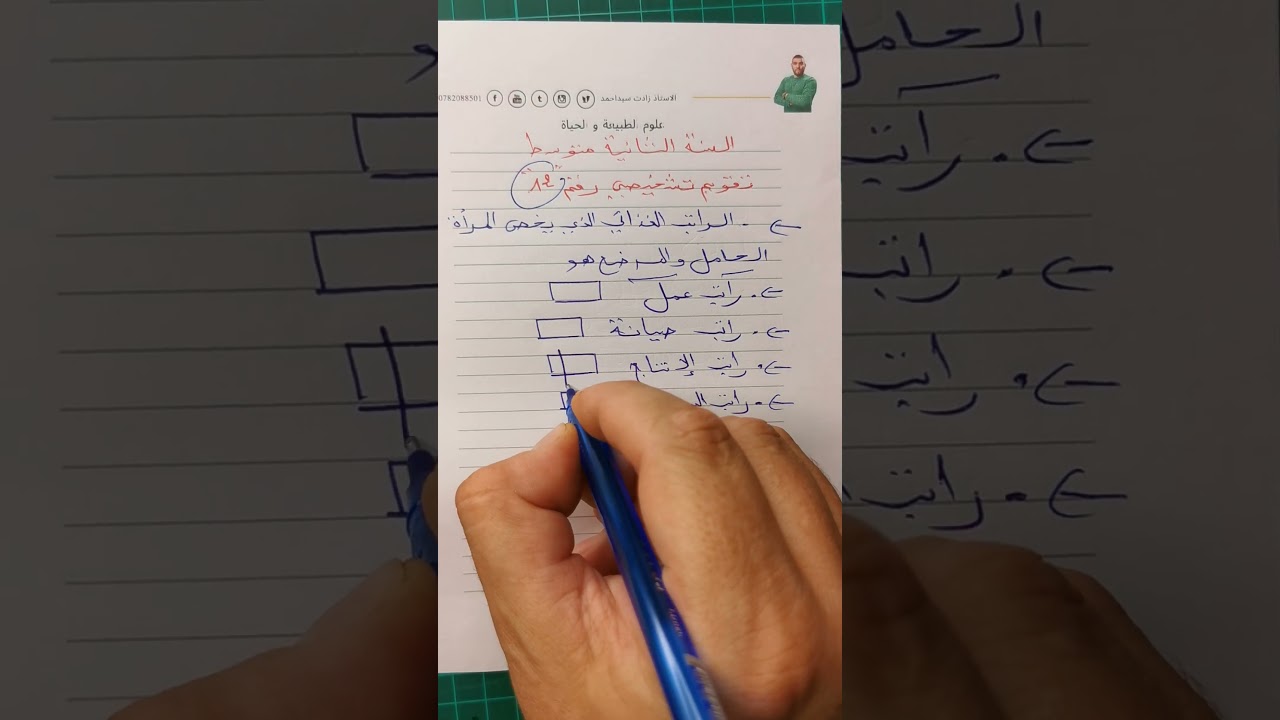 الاستاذ زادت سيداحمد 0782088501
علوم الطبيعة و الحياة
السنة الثانية متوسط
تقويم تشخيصي رقم "12"
- الراتب الغذائي الذي يخص المرأة
الحامل والمرضع هو
- راتب عمل
- راتب صيانة
- راتب الإنتاج
- راتب